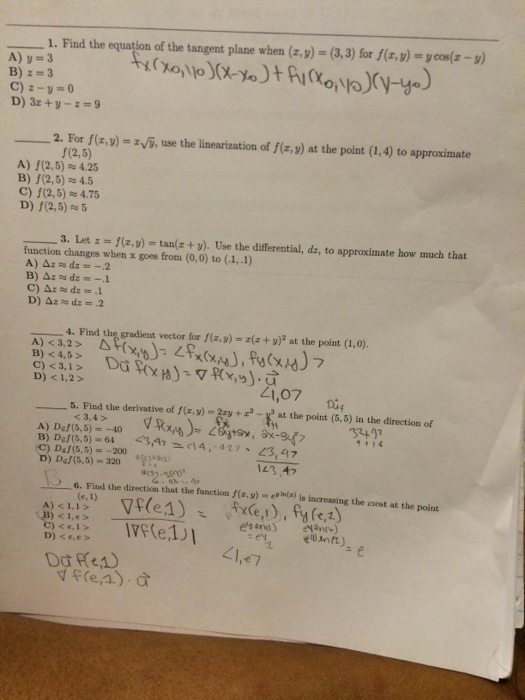 1. Find the equation of the tangent plane when (x, y) = (3, 3) for f(x, y) = y cos(x − y)
A) y = 3
fx(x0,y0)(x-x0)+fy(x0,y0)(y-y0)
B) z = 3
C) z − y = 0
D) 3x + y − z = 9
2. For f(x, y) = x√y, use the linearization of f(x, y) at the point (1, 4) to approximate
f(2, 5)
A) f(2, 5) ≈ 4.25
B) f(2, 5) ≈ 4.5
C) f(2, 5) ≈ 4.75
D) f(2, 5) ≈ 5
3. Let z = f(x, y) = tan(x + y). Use the differential, dz, to approximate how much that
function changes when x goes from (0, 0) to (.1, .1)
A) Δz ≈ dz = −.2
B) Δz ≈ dz = −.1
C) Δz ≈ dz = .1
D) Δz ≈ dz = .2
4. Find the gradient vector for f(x, y) = x(x + y)² at the point (1, 0).
A) < 3, 2 > Δf(x,y) = <fx(x,y), fy(x,y)>
B) < 4, 5 >
C) < 3, 1 > Dūf(x,y) = ∇f(x,y)·ū
D) < 1, 2 >
<1,0>
5. Find the derivative of f(x, y) = 2xy + x² − y³ at the point (5, 5) in the direction of
< 3, 4 >
A) Duf(5, 5) = −40
B) Duf(5, 5) = 64
C) Duf(5, 5) = −200
D) Duf(5, 5) = 320
∇f(x,y) =
<3,4>
<3,4>
|<3,4>
9+16
B 6. Find the direction that the function f(x, y) = e^(y ln(x)) is increasing the most at the point
(e, 1)
A) < 1, 1 >
B) < 1, e >
C) < e, 1 >
D) < e, e >
∇f(e,1) = fx(e,1), fy(e,1)
|∇f(e,1)|
= e
<1,e>
Dū f(e,1)
∇f(e,1)·ū